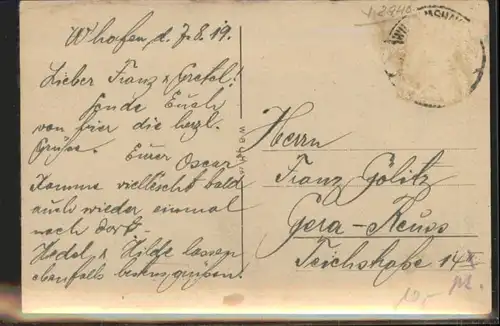 Whofen, d. 7.8.19.
Lieber Franz & Gretel!
Sende Euch
von hier die herzl.
Grüße. Euer
Oscar
Komme vielleicht bald
auch wieder einmal
nach dort.
Hedel & Hilde lassen
ebenfalls bestens grüßen!
Herrn
Franz Golitz
Gera-Reuss
Teichstraße 14
10,-